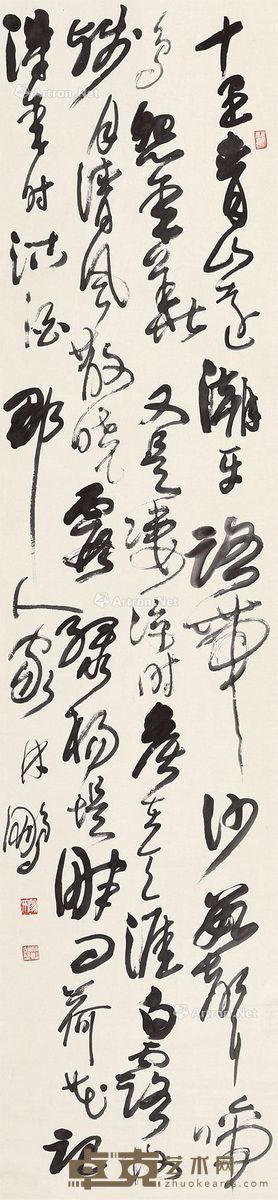 十里青山远潮平路带沙数声啼
鸟怨年华又是凄凉时候在天涯白露收
残月清风散晓霞绿杨堤畔问荷花记
得年时沽酒那人家 林鹏
Artron.Net
卓克艺术网
www.zhuokearts.com